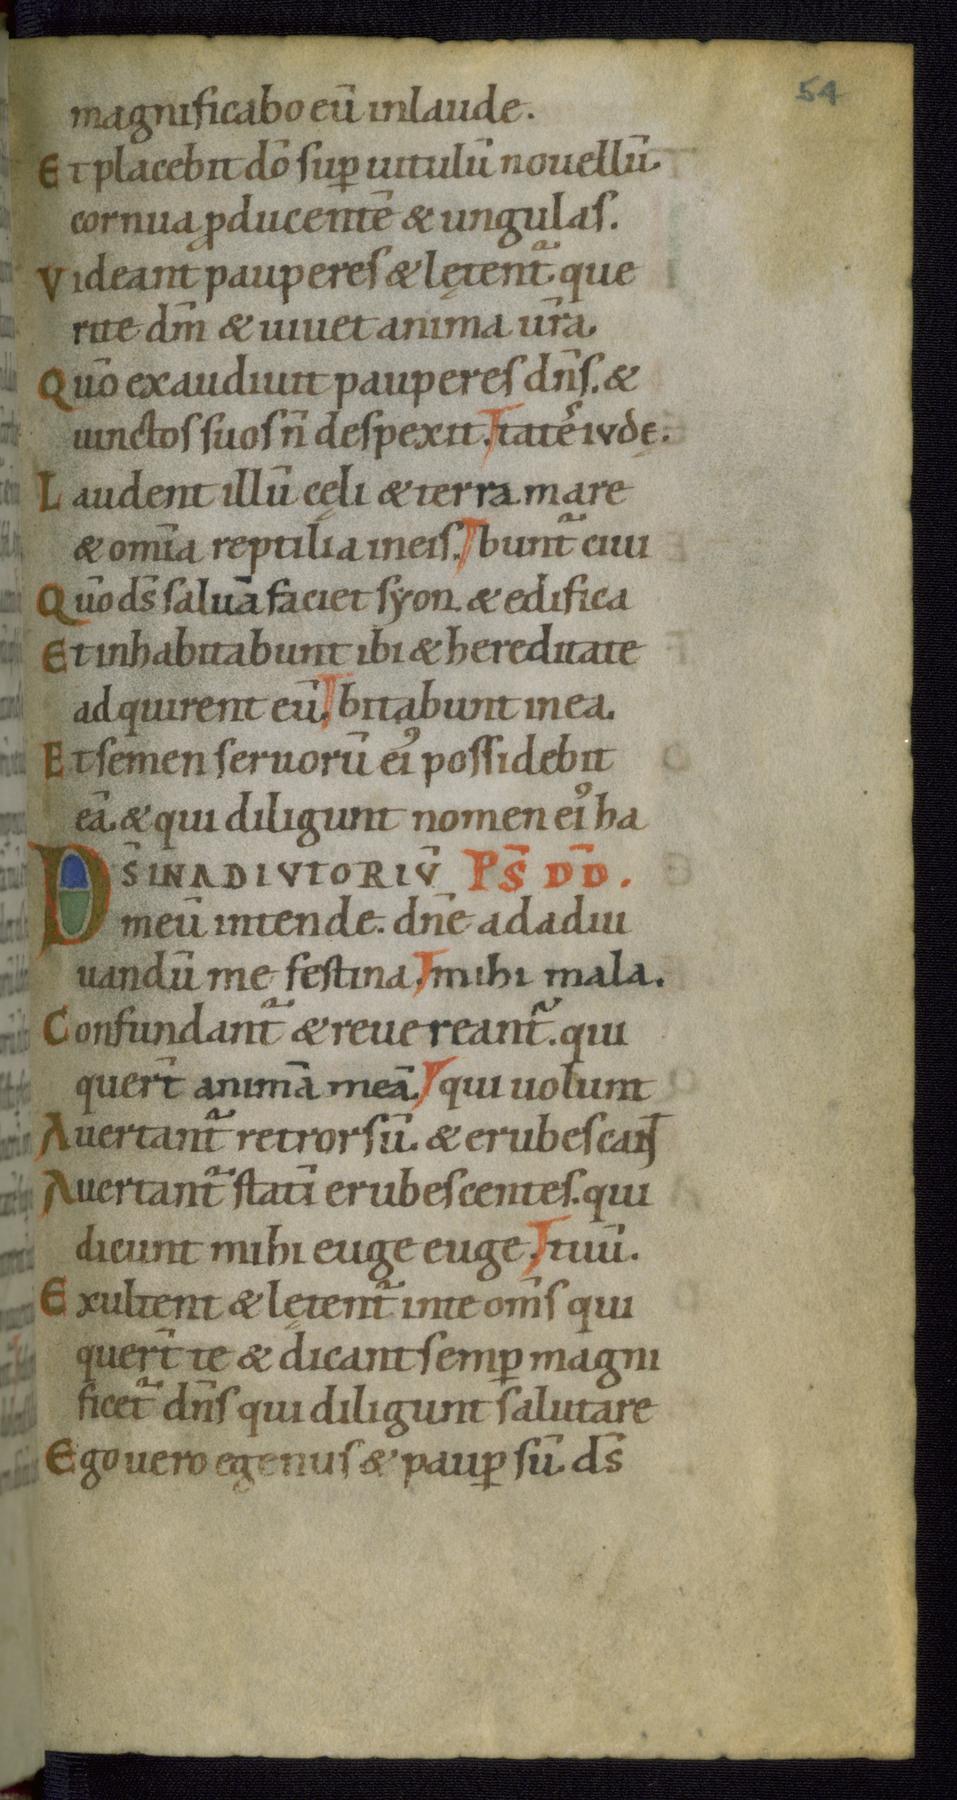 54
magnificabo eū inlaude.
Et placebit dō suꝑ uitulū nouellū.
cornua ꝓducentē & ungulas.
Videant pauperes & lętent᷑ que
rite dm̄ & uiuet anima ur̄a.
Quō exaudiuit pauperes dn̄s. &
uinctos suos n̄ despexit. tatēs iudę.
Laudent illū cęli & terra mare
& om̄ia reptilia ineis. bunt᷑ ciui
Quō ds̄ saluā faciet syon. & edifica
Et inhabitabunt ibi & hereditate
adquirent eū. bitabunt inea.
Et semen seruorū ei᾿ possidebit
eā. & qui diligunt nomen ei᾿ ha
DS̄ IN ADIVTORIV̄ PS̄ DD̄.
meū intende. dn̄e adadiu
uandū me festina. mihi mala.
Confundant᷑ & reuereant᷑. qui
quer̄t animā meā. qui uolunt
Auertant᷑ retrorsū. & erubescant
Auertant᷑ statī erubescentes. qui
dicunt mihi euge euge. tuū.
Exultent & lętent᷑ inte om̄s qui
quer̄t te & dicant semꝑ magni
ficet᷑ dn̄s qui diligunt salutare
Ego uero egenus & pauꝑ sū. ds̄